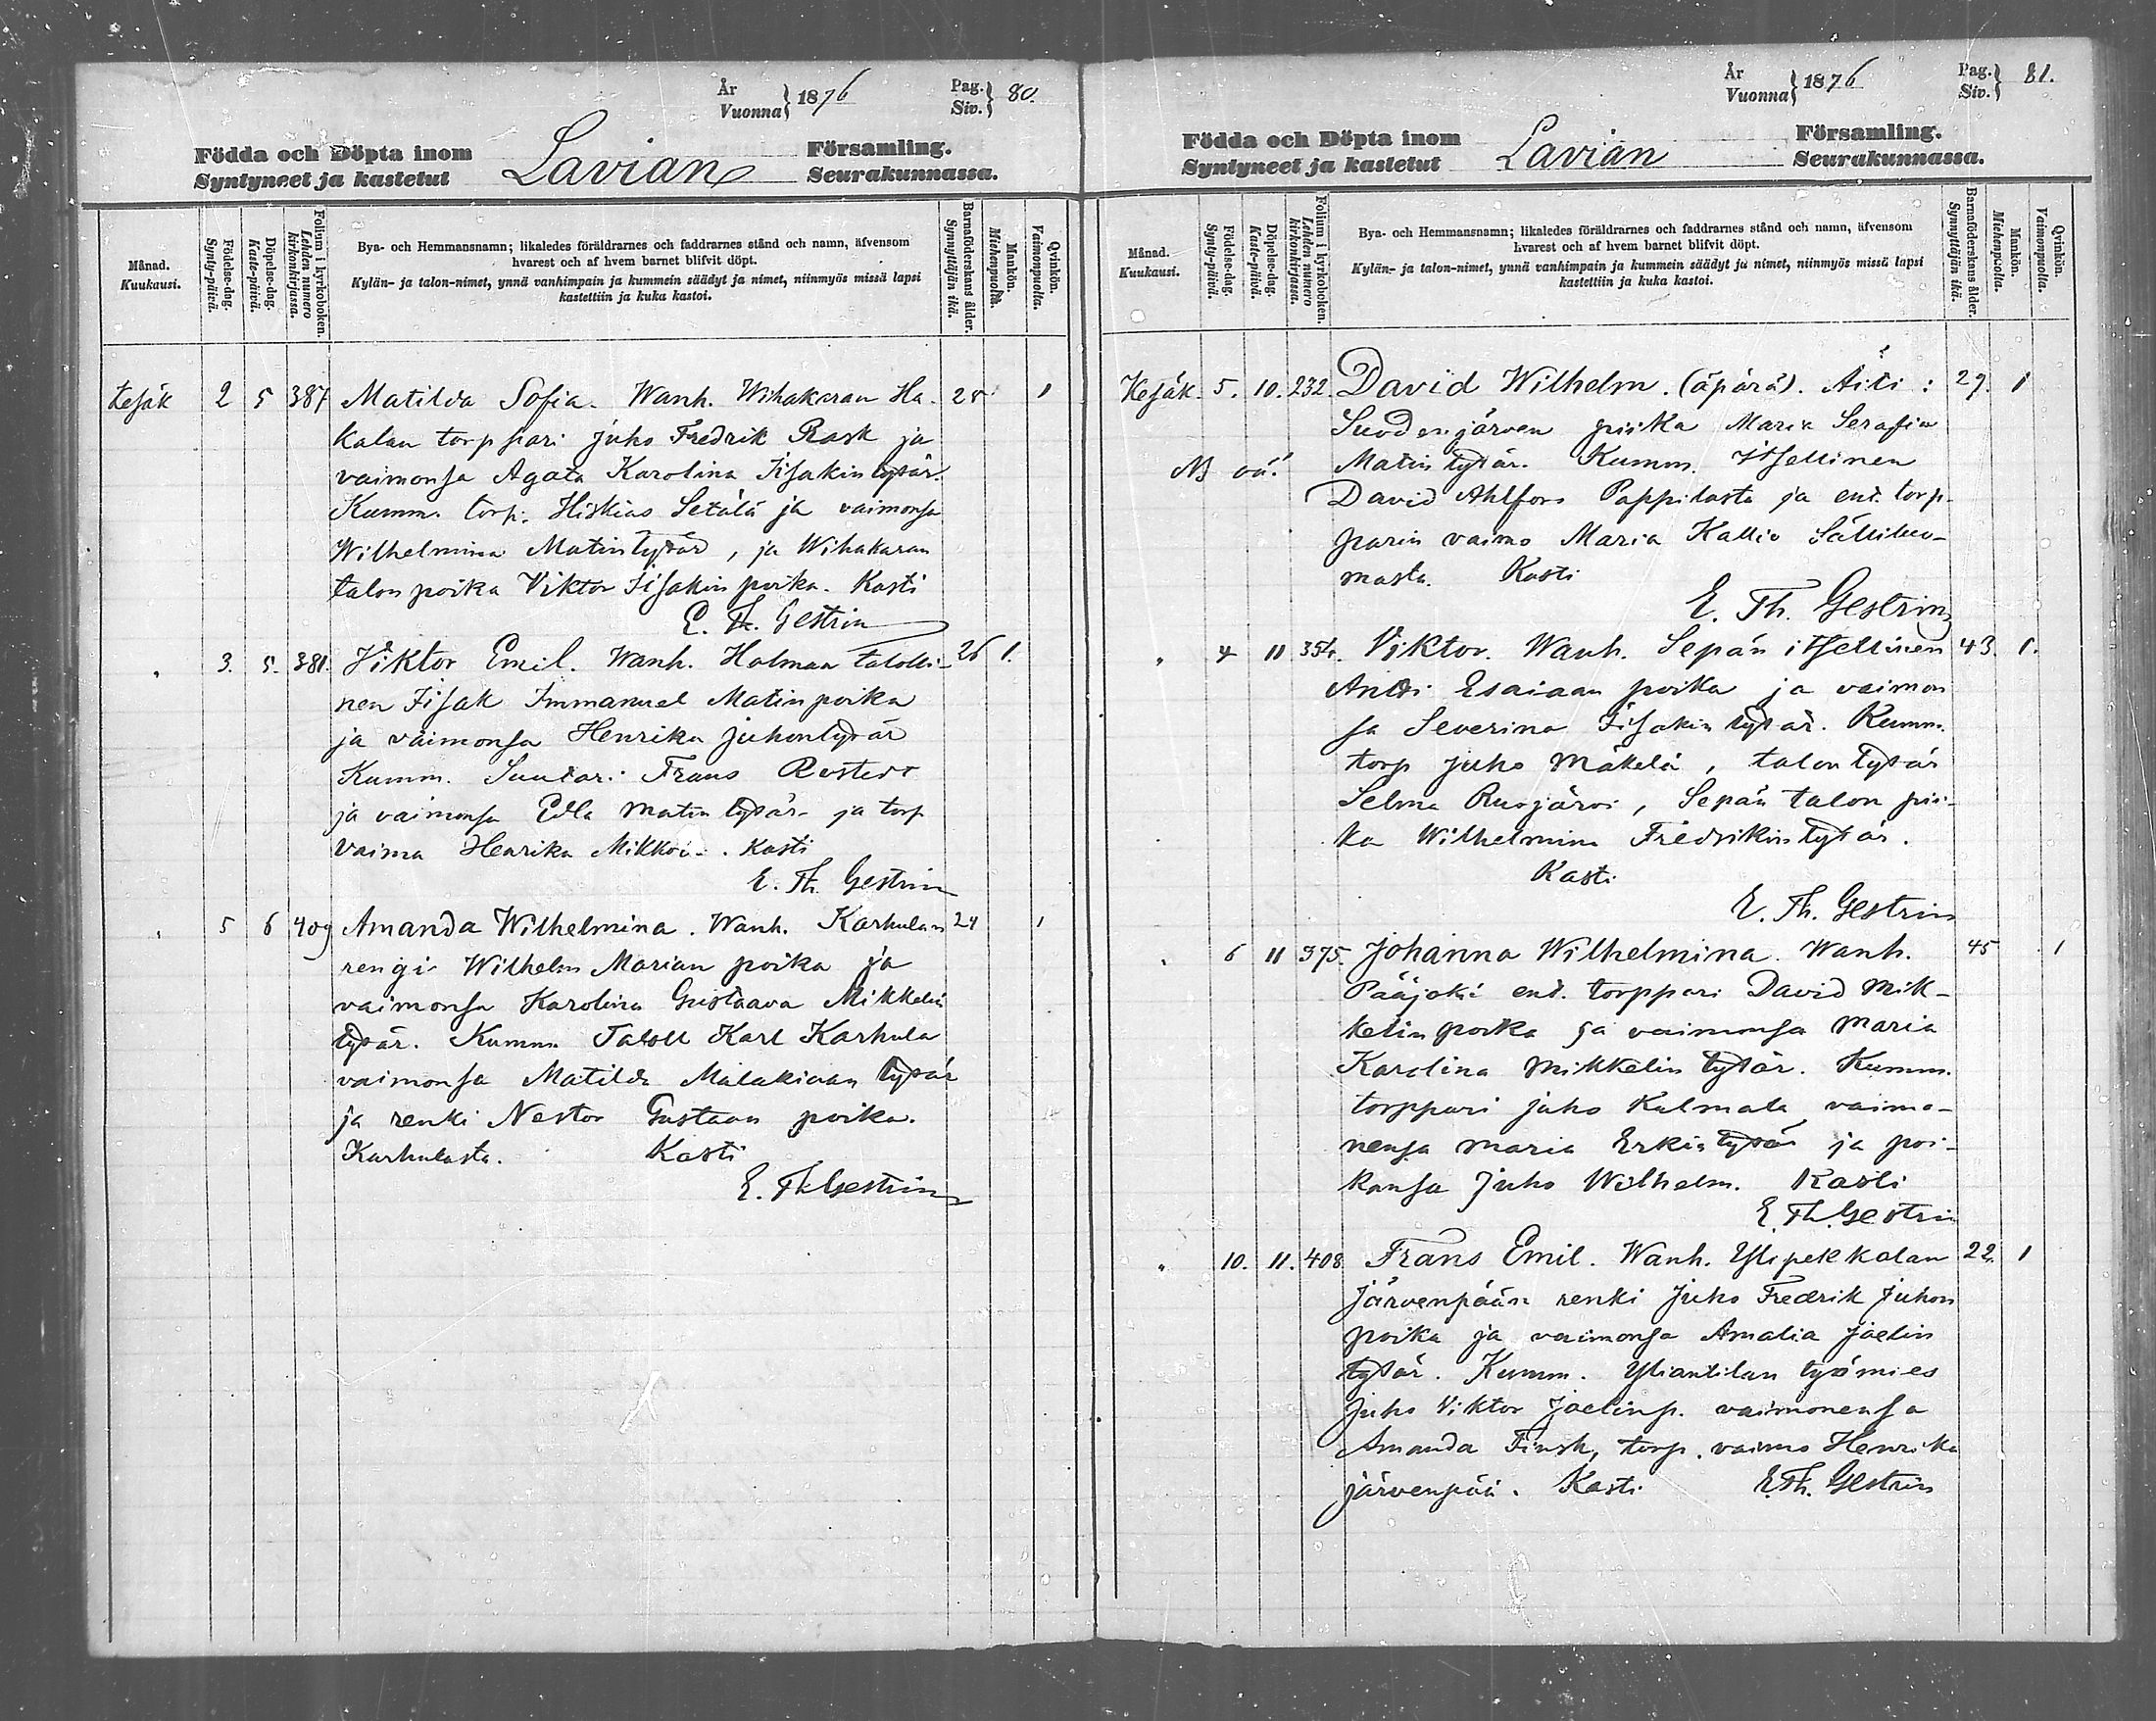 År
Vuonna } 1876
Pag.
Siv. } 80.
Födda och Döpta inom
Syntyneet ja kastetut
Lavian
Församling.
Seurakunnassa.
Månad.
Kuukausi.
Födelse-dag.
Synty-päivä.
Döpelse-dag.
Kaste-päivä.
Folium i kyrkoboken.
Lehden numero
kirkonkirjassa.
Bya- och Hemmansnamn; likaledes föräldrarnes och faddrarnes stånd och namn, äfvensom
hvarest och af hvem barnet blifvit döpt.
Kylän- ja talon-nimet, ynnä vanhimpain ja kummein säädyt ja nimet, niinmyös missä lapsi
kastettiin ja kuka kastoi.
Barnaföderskans ålder.
Synnyttäjän ikä.
Mankön.
Miehenpuolta.
Qvinkön.
Vaimonpuolta.
Kesäk 2 5 387 Matilda Sofia. Wanh. Wihakaran Ha- 1
kalan torppari Juho Fredrik Rask ja
vaimonsa Agata Karolina Iisakin tytär.
Kumm. torp. Hiskias Setälä ja vaimonsa
Wilhelmina Matintytär, ja Wihakaran
talon poika Viktor Iisakin poika. Kasti
E. Th. Gestrin
" 3. 5. 381. Viktor Emil. Wanh. Holman talolli- 26 1.
nen Iisak Immanuel Matinpoika
ja vaimonsa Henrika Juhontytär
Kumm. Suutari Frans Rostedt
ja vaimonsa Edla Matin tytär ja torp
vaimo Henrika Mikkoi. Kasti
E. Th. Gestrin
" 5 6 409 Amanda Wilhelmina. Wanh. Karhulan 24 1
rengi Wilhelm Marian poika ja
vaimonsa Karolina Gustaava Mikkelin
tytär. Kumm. Taloll Karl Karhula
vaimonsa Matilda Malakiaan tytär
ja renki Nestor Gustaan poika.
Karhulasta. Kasti
E. Th Gestrin
År
Vuonna } 1876
Pag.
Siv. } 81.
Födda och Döpta inom
Syntyneet ja kastetut
Lavian
Församling.
Seurakunnassa.
Månad.
Kuukausi.
Födelse-dag.
Synty-päivä.
Döpelse-dag.
Kaste-päivä.
Folium i kyrkoboken.
Lehden numero
kirkonkirjassa.
Bya- och Hemmansnamn; likaledes föräldrarnes och faddrarnes stånd och namn, äfvensom
hvarest och af hvem barnet blifvit döpt.
Kylän- ja talon-nimet, ynnä vanhimpain ja kummein säädyt ja nimet, niinmyös missä lapsi
kastettiin ja kuka kastoi.
Barnaföderskans ålder.
Synnyttäjän ikä.
Mankön.
Miehenpuolta.
Qvinkön.
Vaimonpuolta.
Kesäk. 5. 10. 232. David Wilhelm. (äpärä). Äiti: 29. 1
Suodenjärven piika Maria Serafia
Matin tytär. Kumm. Itsellinen
David Ahlfors Pappilasta ja ent. torp-
parin vaimo Maria Kallio
masta. Kasti
E. Th. Gestrin
" 4 11 354. Viktor. Wanh. Sepän itsellinen 43. 1.
Antti Esaiaan poika ja vaimon
sa Severina Iisakin tytär. Kumm.
torp Juho Mäkelä, talon tytär
Selma Ruojärvi, Sepän talon pii-
ka Wilhelmina Fredrikin tytär.
Kasti
E. Th. Gestrin
" 6 11 375. Johanna Wilhelmina. Wanh. 45 1
Pääjoki ent. torppari David Mik-
kelin poika ja vaimonsa Maria
Karolina Mikkelin tytär. Kumm.
torppari Juho Kulmala vaimo-
nensa Maria Erkin tytär ja poi-
kansa Juho Wilhelm. Kasti
E. Th. Gestrin
" 10. 11. 408 Frans Emil. Wanh. Ylipekkalan 22. 1
Järvenpään renki Juho Fredrik Juhon
poika ja vaimonsa Amalia Joelin
tytär. Kumm. Yliantilan työmies
Juho Viktor Joelinp. vaimonensa
Amanda Finsk, torp. vaimo Henrika
Järvenpää. Kasti E. Th. Gestrin